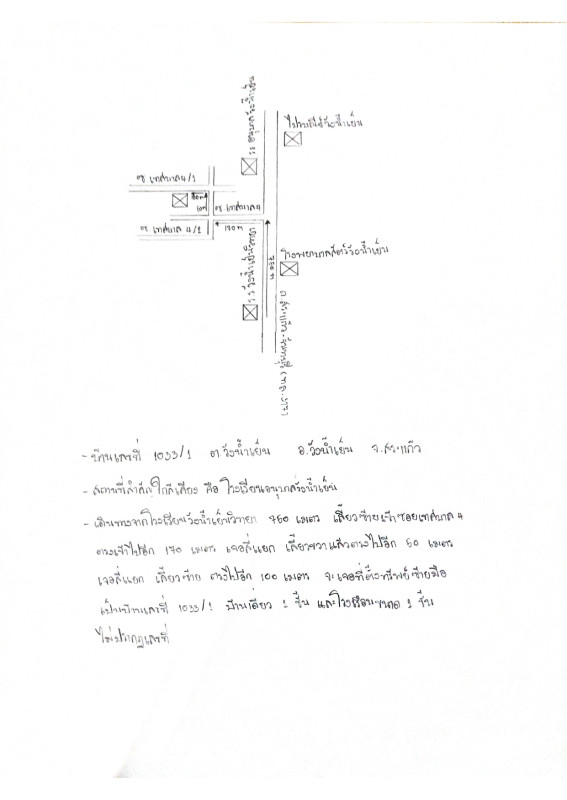 ร.ร อนุบาลวังน้ำเย็น
ไปรษณีย์วังน้ำเย็น
ซ. เทศบาล 4/1
50 m
100 m
ซ. เทศบาล 4
ซ. เทศบาล 4/1
170 m
750 m
ร.ร วังน้ำเย็นวิทยา
โรงพยาบาลสัตว์วังน้ำเย็น
ถ.สระแก้ว-จันทบุรี (ทล.317)
- บ้านเลขที่ 1033/1 ต.วังน้ำเย็น อ.วังน้ำเย็น จ.สระแก้ว
- สถานที่สำคัญใกล้เคียง คือ โรงเรียนอนุบาลวังน้ำเย็น
- เดินทางจากโรงเรียนวังน้ำเย็นวิทยา 750 เมตร เลี้ยวซ้ายเข้าซอยเทศบาล 4
ตรงเข้าไปอีก 170 เมตร เจอสี่แยก เลี้ยวขวาแล้วตรงไปอีก 50 เมตร
เจอสี่แยก เลี้ยวซ้าย ตรงไปอีก 100 เมตร จะเจอที่ตั้งทรัพย์ซ้ายมือ
เป็นบ้านเลขที่ 1033/1 บ้านเดี่ยว 1 ชั้น และโรงเรือนขนาด 1 ชั้น
ไม่ปรากฏเลขที่